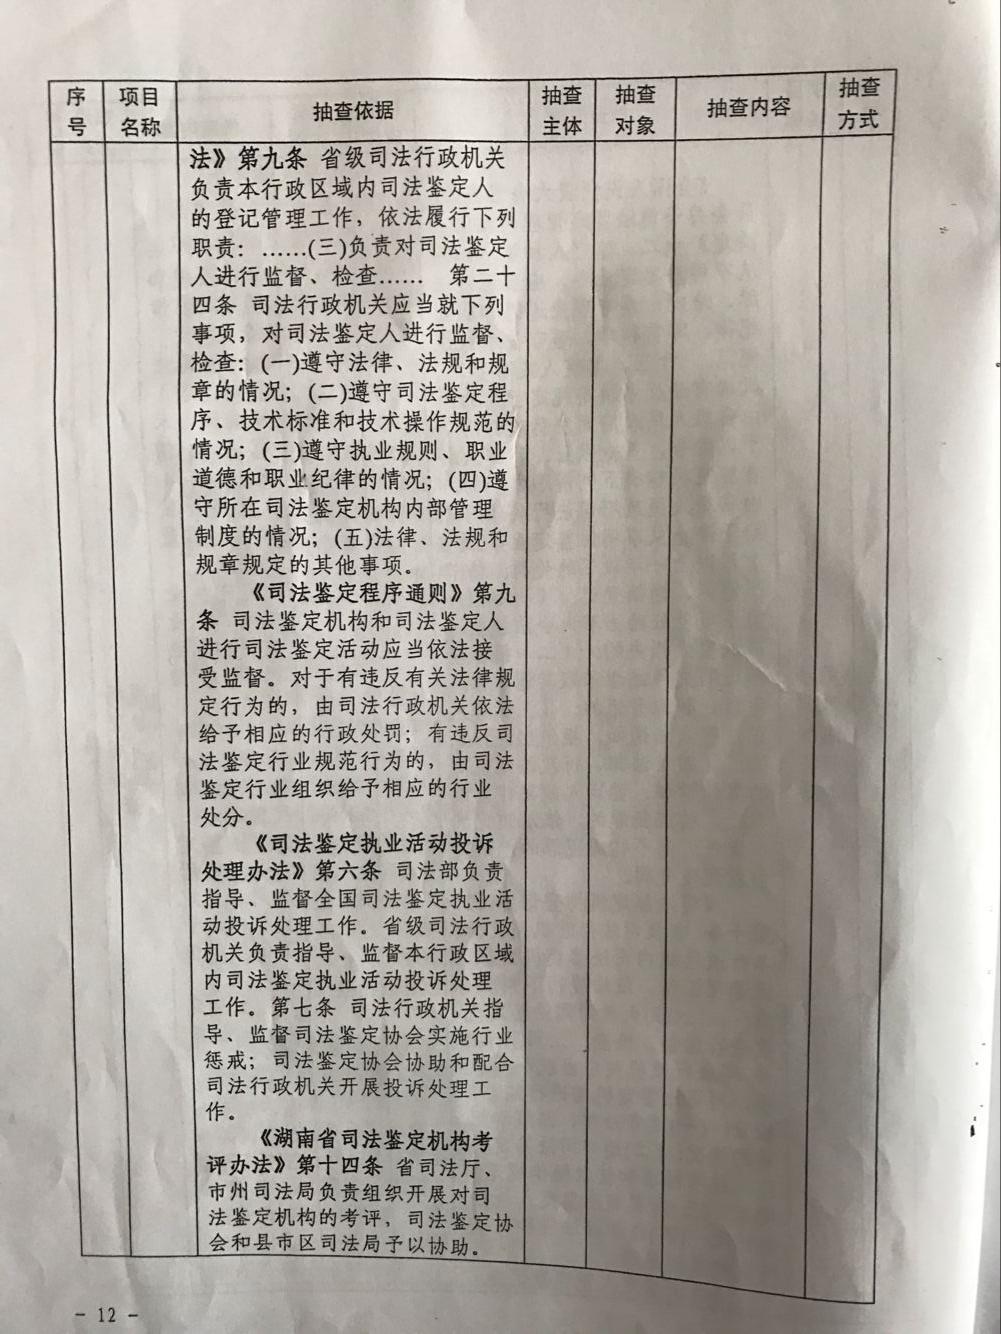 序号 项目名称 抽查依据 抽查主体 抽查对象 抽查内容 抽查方式
法》第九条 省级司法行政机关
负责本行政区域内司法鉴定人
的登记管理工作，依法履行下列
职责：……(三)负责对司法鉴定
人进行监督、检查…… 第二十
四条 司法行政机关应当就下列
事项，对司法鉴定人进行监督、
检查：(一)遵守法律、法规和规
章的情况；(二)遵守司法鉴定程
序、技术标准和技术操作规范的
情况；(三)遵守执业规则、职业
道德和职业纪律的情况；(四)遵
守所在司法鉴定机构内部管理
制度的情况；(五)法律、法规和
规章规定的其他事项。
《司法鉴定程序通则》第九
条 司法鉴定机构和司法鉴定人
进行司法鉴定活动应当依法接
受监督。对于有违反有关法律规
定行为的，由司法行政机关依法
给予相应的行政处罚；有违反司
法鉴定行业规范行为的，由司法
鉴定行业组织给予相应的行业
处分。
《司法鉴定执业活动投诉
处理办法》第六条 司法部负责
指导、监督全国司法鉴定执业活
动投诉处理工作。省级司法行政
机关负责指导、监督本行政区域
内司法鉴定执业活动投诉处理
工作。第七条 司法行政机关指
导、监督司法鉴定协会实施行业
惩戒；司法鉴定协会协助和配合
司法行政机关开展投诉处理工
作。
《湖南省司法鉴定机构考
评办法》第十四条 省司法厅、
市州司法局负责组织开展对司
法鉴定机构的考评，司法鉴定协
会和县市区司法局予以协助。
- 12 -